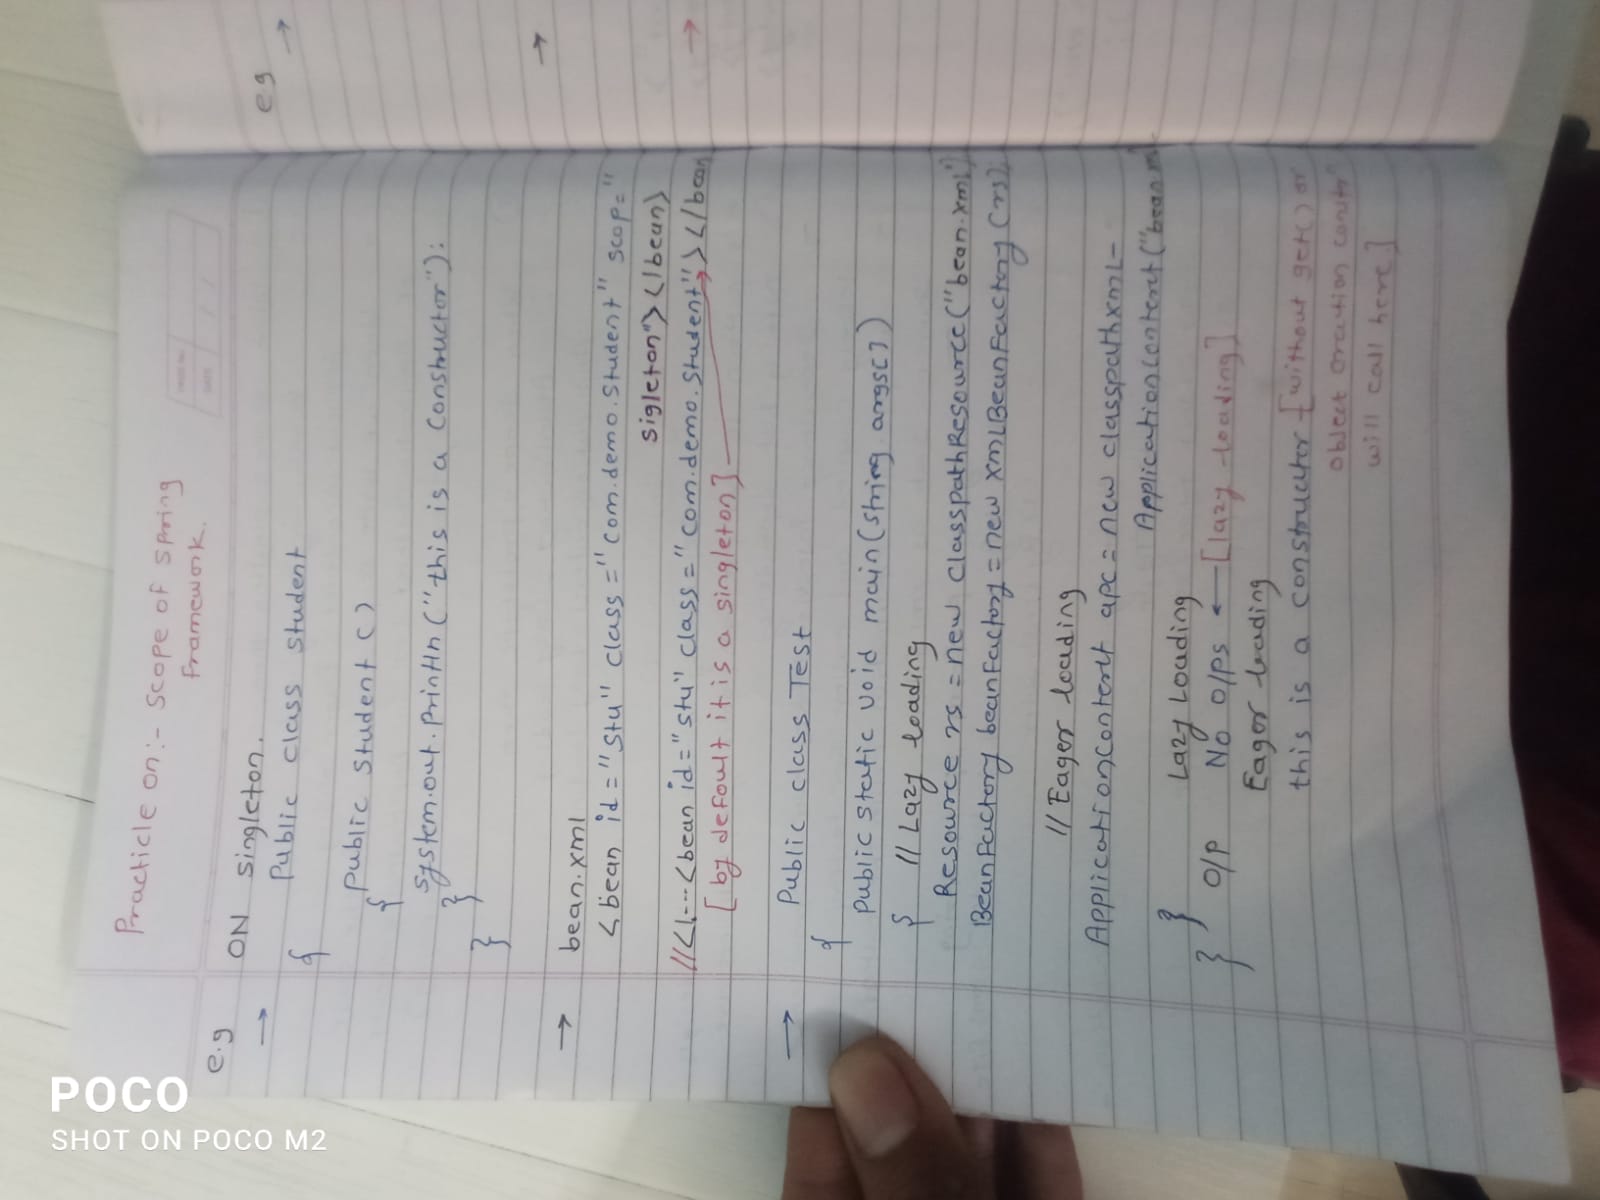 Practicle on:- Scope of spring
framework.
e.g ON singleton.
→ Public class student
{
Public student ()
{
System.out.println("this is a Constructor"):
}
}
→ bean.xml
<bean id="stu" class="com.demo.student" scop="
sigleton"></bean>
//<!---<bean id="stu" class="com.demo.student"></bean
[by defoult it is a singleton]
→ Public class Test
{
Public static void main(string args[])
{ //Lazy loading
Resource rs = new classpathResource("bean.xml")
BeanFactory beanFactory = new xmlBeanFactory(rs);
//Eager loading
ApplicationContext apc = new classpathxml-
ApplicationContext("bean.
}
} O/P Lazy Loading
No O/Ps ← [lazy-loading]
Eager loading
this is a constructor - [without get() or
object creation constr
will call here]
e g →
→
→
POCO
SHOT ON POCO M2